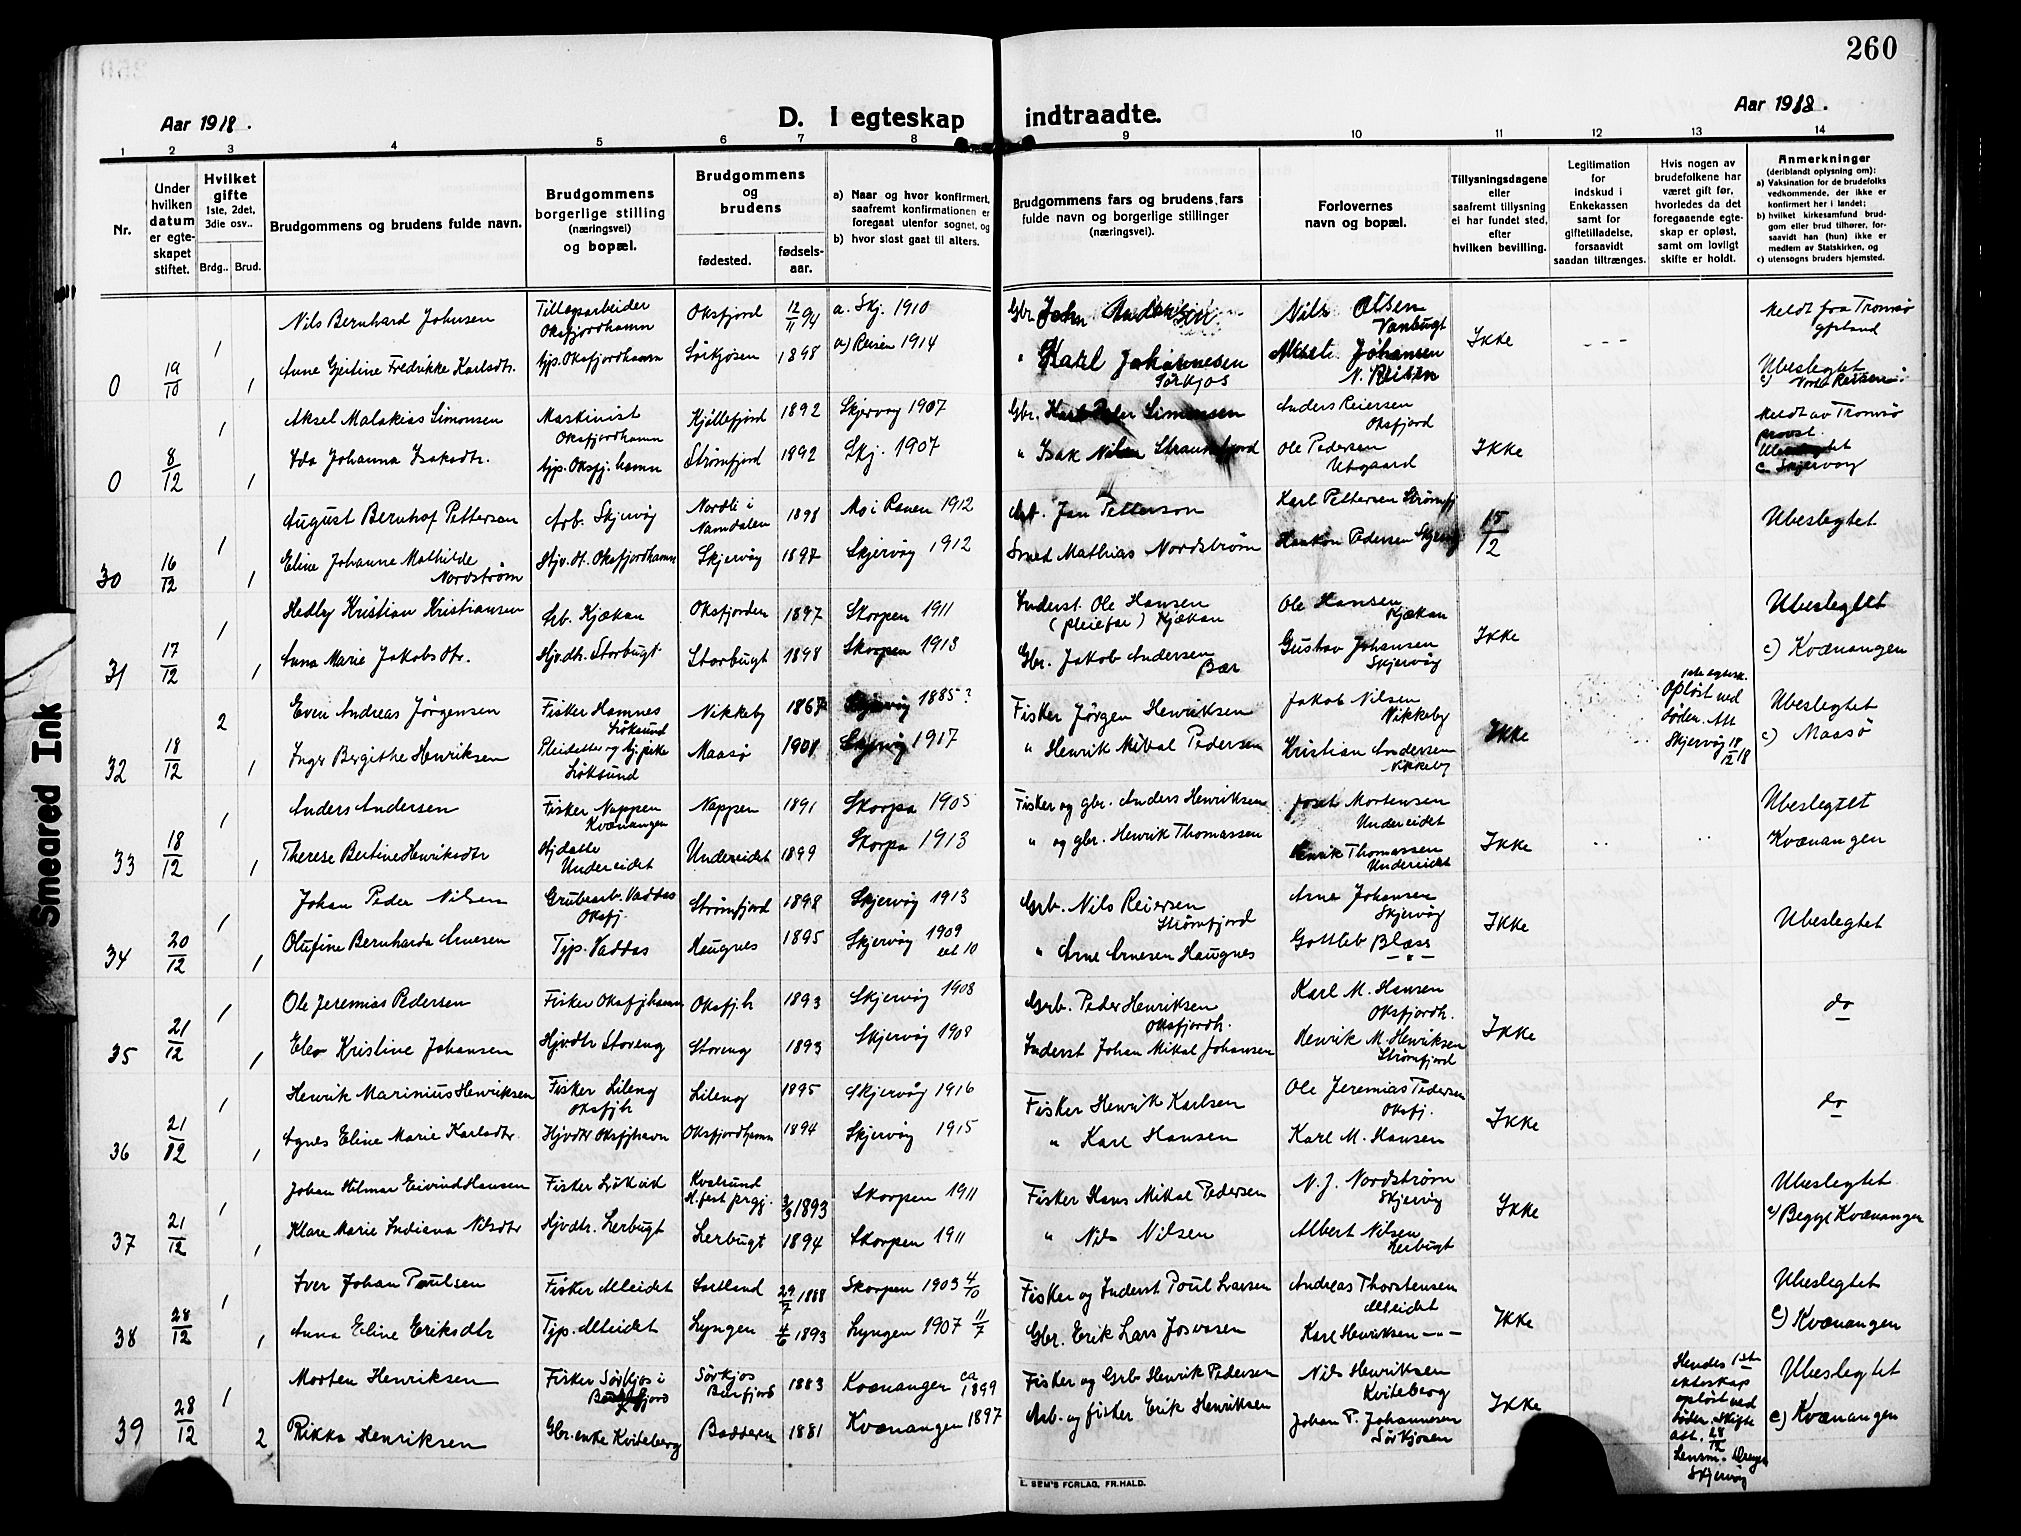 260
Aar 1918.
D. I egteskap indtraadte.
Aar 1918.
1 2 3 4 5 6 7 8 9 10 11 12 13 14
Nr.
Under hvilken datum er egteskapet stiftet.
Hvilket gifte 1ste, 2det, 3die osv..
Brdg.. Brud.
Brudgommens og brudens fulde navn.
Brudgommens borgerlige stilling (næringsvei) og bopæl.
Brudgommens og brudens
fødested.
fødselsaar.
a) Naar og hvor konfirmert, saafremt konfirmationen er foregaat utenfor sognet, og
b) hvor sidst gaat til alters.
Brudgommens fars og brudens fars fulde navn og borgerlige stillinger (næringsvei).
Forlovernes navn og bopæl.
Tillysningsdagene eller saafremt tillysning ei har fundet sted, efter hvilken bevilling.
Legitimation for indskud i Enkekassen samt for giftetilladelse, forsaavidt saadan tiltrænges.
Hvis nogen av brudefolkene har været gift før, hvorledes da det foregaaende egteskap er opløst, samt om lovligt skifte er holdt.
Anmerkninger
(deriblandt oplysning om):
a) Vaksination for de brudefolks vedkommende, der ikke er konfirmert her i landet;
b) hvilket kirkesamfund brudgom eller brud tilhører, forsaavidt han (hun) ikke er medlem av Statskirken, og
c) utensogns bruders hjemsted.
Nils Bernhard Johnsen Oksfjordhamn Oksfjord 12/11 94 a. Skj. 1910 Gbr. John Nils Olsen Meldt fra Tromsø
Vanbugt
0 19/10 1 1 Anne Gjertine Fredrikke Karlsdtr. tjp. Oksfjordhamn Sørkjosen 1898 a) Reisen 1914 " Karl Johannesen Johansen Ikke - - - Ubeslegtet
Sørkjos N. Reisen c) Nord Reisen
Aksel Malakias Simonsen Maskinist Kjøllefjord 1892 Skjervøy 1907 Gbr. Simonsen Anders Reiersen Meldt av Tromsø
Oksfjordhamn Oksfjord provst.
0 8/12 1 1 Ida Johanna Isaksdtr. tjp. Oksfj. hamn Strømfjord 1892 Skj. 1907 " Isak Nilsen Ole Pedersen Ikke Ubeslegtet
Utgaard c. Skjervøy
August Bernhof Pettersen Arb. Skjervøy Nordli i Namdalen 1898 Mo i Ranen 1912 Arb. Jan Petterson Karl Pettersen Strømfj 15/12 Ubeslegtet
30 16/12 1 1 Eline Johanne Mathilde Oksfjordhamn Skjervøy 1897 Skjervøy 1912 Smed Mathias Nordstrøm Haakon Pedersen Skjervøy
Nordstrøm
Hedley Kristian Kristiansen Arb. Kjækan Oksfjorden 1897 Skorpen 1911 Inderst. Ole Hansen Ole Hansen Ubeslegtet
(pleiefar) Kjækan Kjækan
31 17/12 1 1 Anna Marie Jakobsdtr. Hjvdtr. Storbugt Storbugt 1898 Skorpen 1913 Gbr. Jakob Andersen Gustav Johansen Ikke c) Kvænangen
Bær Skjervøy
Even Andreas Jørgensen Fisker Hamnes Nikkeby 1867 Skjervøy 1885? Fisker Jørgen Henriksen Jakob Nilsen Opløst ved Ubeslegtet
Løksund Nikkeby døden. Att
32 18/12 2 1 Inger Bergithe Henriksen Maasø 1901 Skjervøy 1917 " Henrik Mikal Pedersen Kristian Andersen Ikke Skjervøy 18/12 18 c) Maasø
Løksund Nikkeby
Anders Andersen Fisker Nappen Nappen 1891 Skorpa 1905 Fisker og gbr. Anders Henriksen Mortensen Ubeslegtet
Kvænangen Undereidet
33 18/12 1 1 Therese Bertine Henriksdtr Undereidet Undereidet 1899 Skorpa 1913 " og gbr. Henrik Thomassen Henrik Thomassen Ikke Kvænangen
Undereidet
Johan Peder Nilsen Grubearb. Vaddas Strømfjord 1898 Skjervøy 1913 Grb. Nils Reiersen Arne Johansen Ubeslegtet
Oksfj. Strømfjord Skjervøy
34 20/12 1 1 Olufine Bernharda Arnesen Tjp. Vaddas Haugnes 1895 Skjervøy 1909 el 10 " Arne Arnesen Haugnes Gottlieb Blæss Ikke
Ole Jeremias Pedersen Fisker Oksfjhamn Oksfj.h 1893 Skjervøy 1908 Grb. Peder Henriksen Karl M. Hansen do
Oksfjordh. Oksfjordh.
35 21/12 1 1 Eleo Kristine Johansen Hjvdtr Storeng Storeng 1893 Skjervøy 1908 Inderst Johan Mikal Johansen Henrik M. Henriksen Ikke
Strømfjord
Henrik Marinius Henriksen Fisker Lileng Lileng 1895 Skjervøy 1916 Fisker Henrik Karlsen Ole Jeremias Pedersen do
Oksfjh Oksfj.
36 21/12 1 1 Agnes Eline Marie Karlsdtr. Hjvdtr Oksfjhavn Oksfjordhamn 1894 Skjervøy 1915 " Karl Hansen Karl M. Hansen Ikke
Johan Hilmar Eivind Hansen Fisker Kvalsund 1893 Skorpen 1911 Fisker Hans Mikal Pedersen N. J. Nordstrøm Ubeslegtet
H.fest prgj. Skjervøy
37 21/12 1 1 Klare Marie Indiana Nilsdtr Hjvdtr. Lerbugt Lerbugt 1894 Skorpen 1911 " Nils Nilsen Albert Nilsen Ikke c) Begge Kvænangen
Lerbugt
Iver Johan Poulsen Fisker Alteidet 29/7 1888 Skorpen 1903 4/10 Fisker og Inderst Poul Andreas Thorstensen Ubeslegtet
Alteidet
38 28/12 1 1 Anna Eline Eriksdtr Tjp. Alteidet Lyngen 4/6 1893 Lyngen 1907 11/7 Gbr. Erik Lars Josvasen Karl Henriksen -"- Ikke c) Kvænangen
Morten Henriksen Fisker Sørkjos i Sørkjos Burfjord 1883 Kvænangen ca 1899 Fisker og Grb Henrik Pedersen Nils Henriksen Hendes 1ste Ubeslegtet
Kviteberg ekteskap opløst ved
39 28/12 1 2 Rikka Henriksen Gbr. enke Kviteberg Badderen 1881 Kvænangen 1897 Arb. og fisker Erik Henriksen Johan P. Johannesen Ikke døden. Skifte att. 28/12 c) Kvænangen
Sørkjosen Lensm. Skjervøy
E. SEM'S FORLAG, FR.HALD.
Smeared Ink